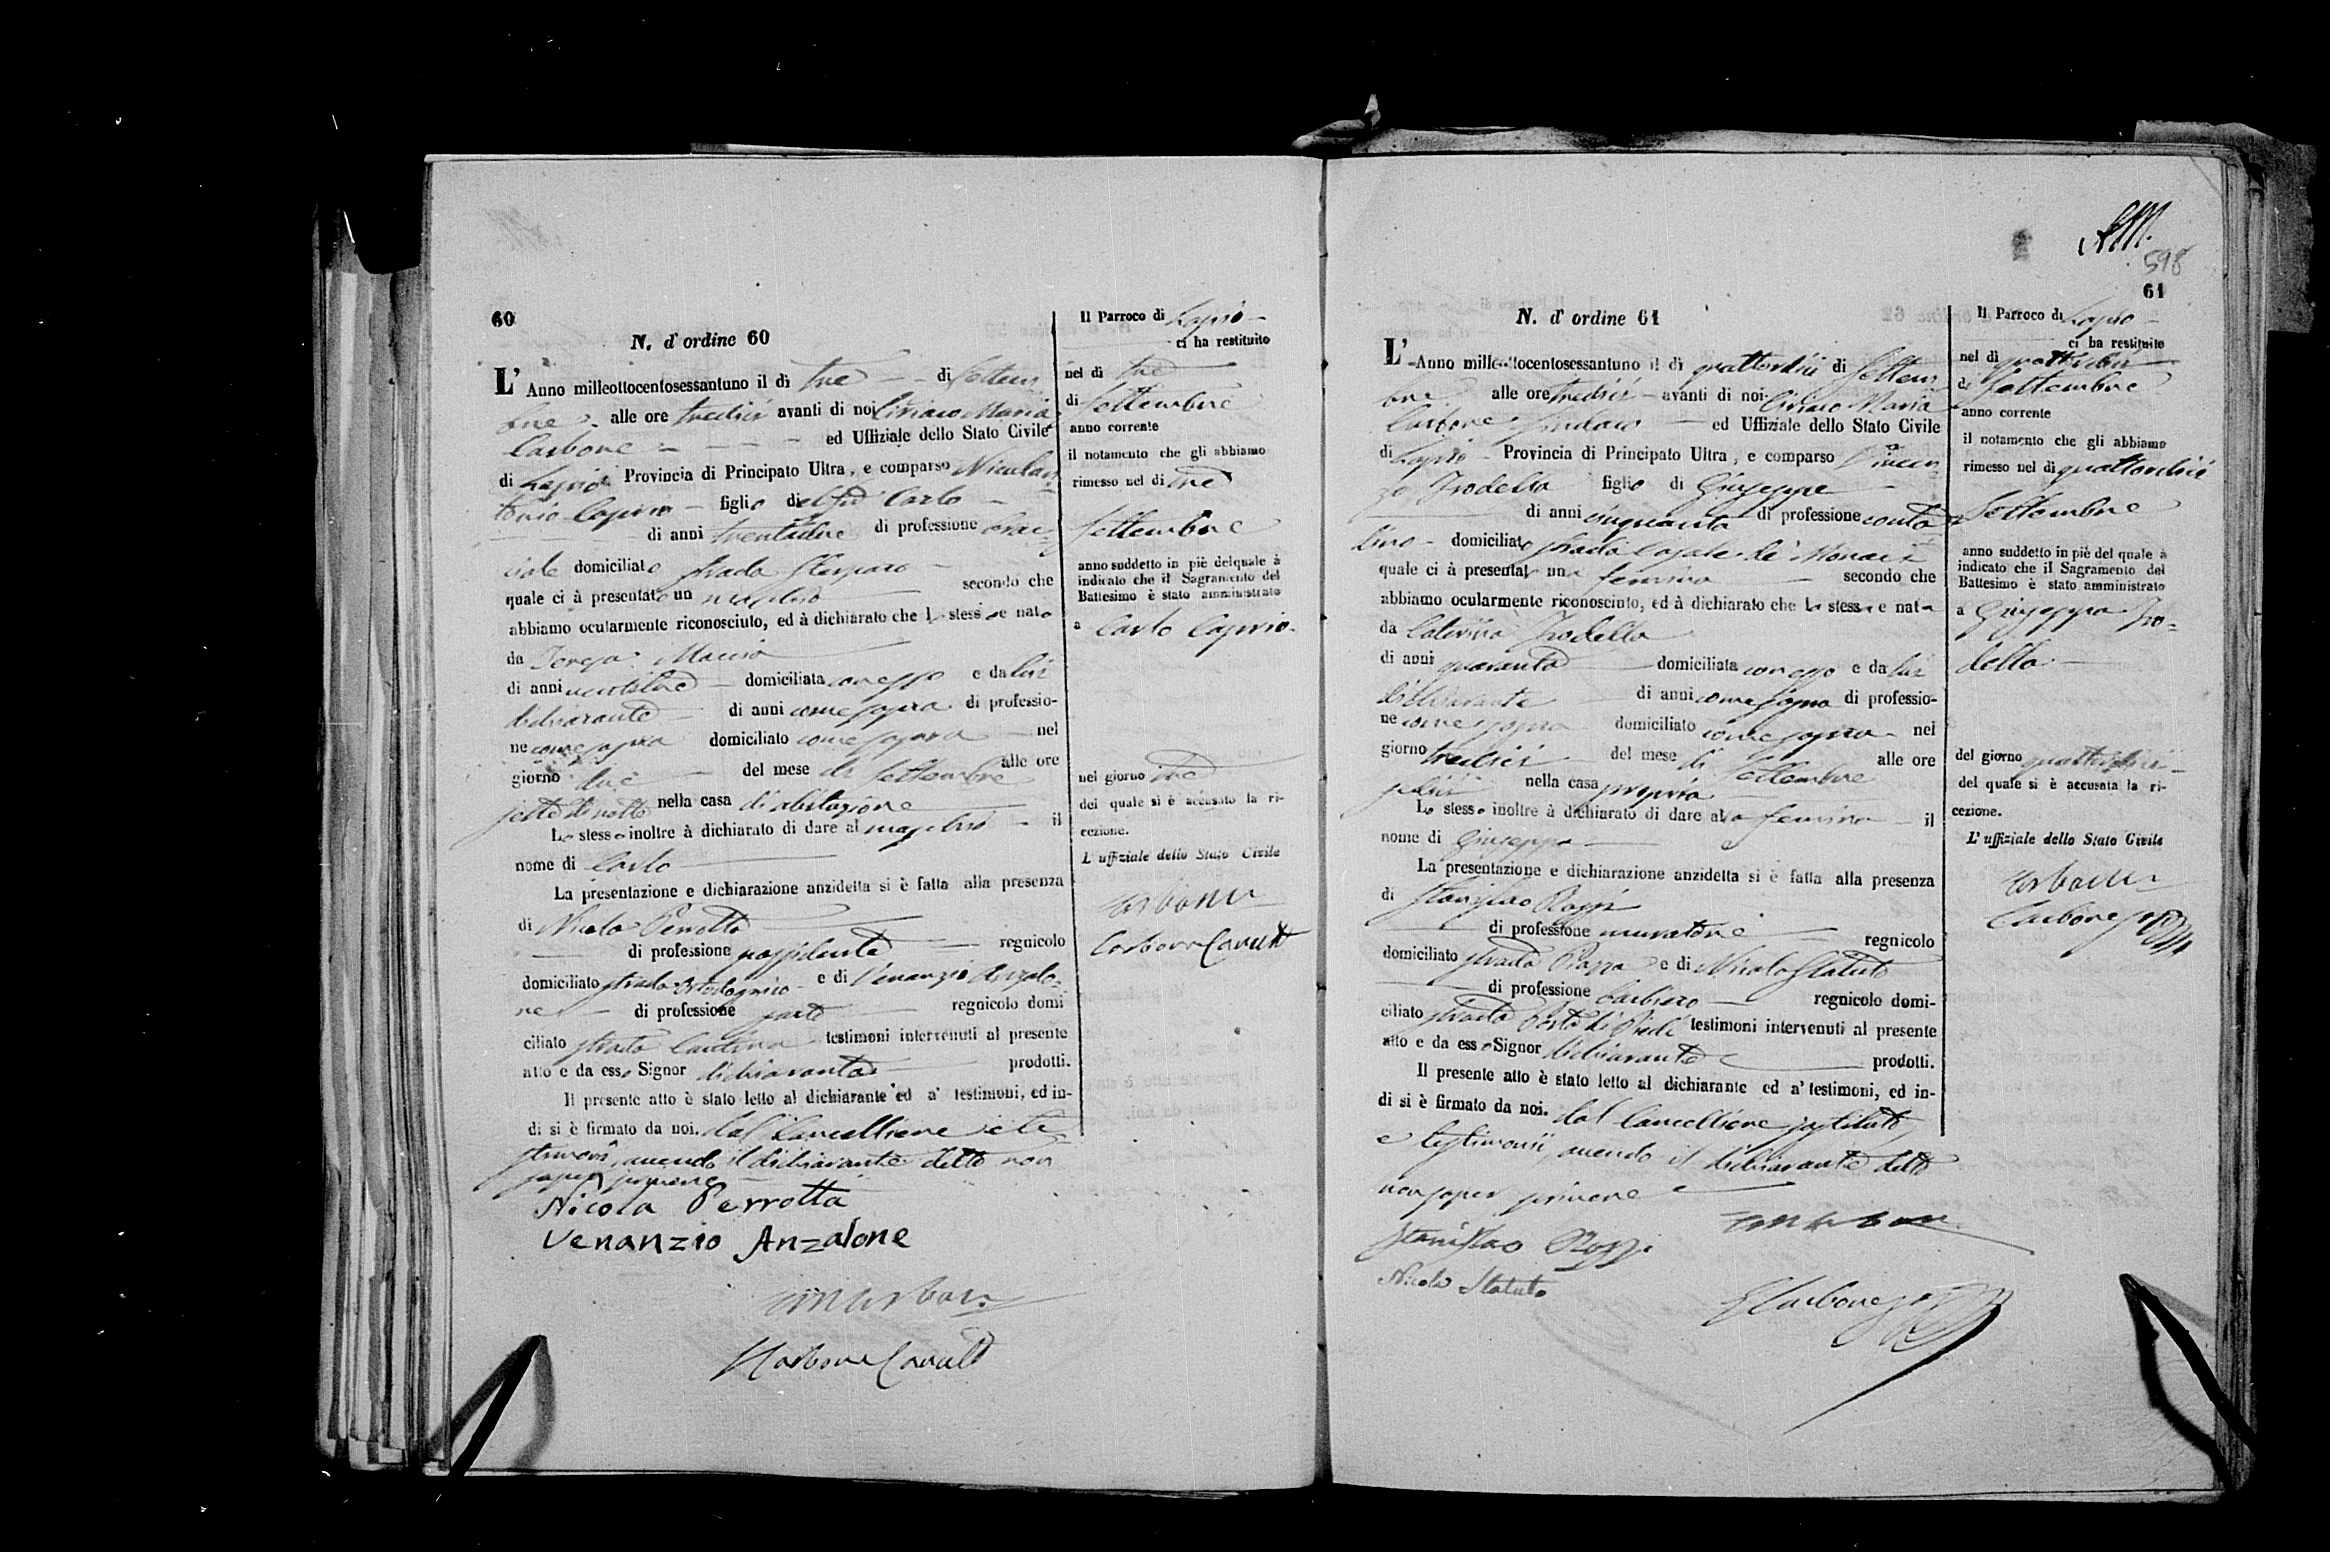 60
N. d' ordine 60
L' Anno milleottocentosessantuno il dì tre di Settem
bre alle ore tredici avanti di noi Ciriaco Maria
Carbone ed Uffiziale dello Stato Civile
di Lapio Provincia di Principato Ultra, e comparso Nicolan
tonio Caprio figlio del fu Carlo
di anni trentadue di professione brac
ciale domiciliato strada
quale ci à presentato un maschio secondo che
abbiamo ocularmente riconosciuto, ed à dichiarato che lo stesso e nato
da Teresa
di anni domiciliata con esso e da lui
dichiarante di anni come sopra di professio-
ne come sopra domiciliato come sopra nel
giorno due del mese di Settembre alle ore
sette di notte nella casa di abitazione
Lo stesso inoltre à dichiarato di dare al maschio il
nome di Carlo
La presentazione e dichiarazione anzidetta si è fatta alla presenza
di Nicola Perrotta
di professione possidente regnicolo
domiciliato strada e di Venanzio Anzalo=
ne di professione sarto regnicolo domi
ciliato strada Cantina testimoni intervenuti al presente
atto e da esso Signor dichiarante prodotti.
Il presente atto è stato letto al dichiarante ed a' testimoni, ed in-
di si è firmato da noi. dal Cancelliere e te
stimoni, avendo il dichiarante detto non
saper scrivere
Nicola Perrotta
Venanzio Anzalone
Carbone
Il Parroco di Lapio
ci ha restituito
nel dì tre
di Settembre
anno corrente
il notamento che gli abbiamo
rimesso nel dì tre
Settembre
anno suddetto in piè del quale à
indicato che il Sagramento del
Battesimo è stato amministrato
a Carlo Caprio
nel giorno tre
del quale si è accusato la ri-
cezione.
L' uffiziale dello Stato Civile
Carbone
598
61
N. d' ordine 61
L' Anno milleottocentosessantuno il dì quattordici di Settem
bre alle ore tredici avanti di noi Ciriaco Maria
Carbone Sindaco ed Uffiziale dello Stato Civile
di Lapio Provincia di Principato Ultra, e comparso Vincen
zo Trodella figlio di Giuseppe
di anni cinquanta di professione conta
dino domiciliato strada Casale de' Monaci
quale ci à presentat una femina secondo che
abbiamo ocularmente riconosciuto, ed à dichiarato che la stessa e nata
da Caterina Trodella
di anni quaranta domiciliata con esso e da lui
dichiarante di anni come sopra di professio-
ne come sopra domiciliato come sopra nel
giorno tredici del mese di Settembre alle ore
nella casa propria
Lo stesso inoltre à dichiarato di dare alla femina il
nome di Giuseppa
La presentazione e dichiarazione anzidetta si è fatta alla presenza
di Stanislao Rossi
di professione muratore regnicolo
domiciliato strada Piazza e di Nicola Statuto
di professione barbiere regnicolo domi-
ciliato strada Porta di testimoni intervenuti al presente
atto e da esso Signor dichiarante prodotti.
Il presente atto è stato letto al dichiarante ed a' testimoni, ed in-
di si è firmato da noi. dal Cancelliere sostituto,
e testimonii, avendo il dichiarante detto
non saper scrivere
Stanislao Rossi
Nicola Statuto
Carbone
Il Parroco di Lapio
ci ha restituito
nel dì quattordici
di Settembre
anno corrente
il notamento che gli abbiamo
rimesso nel dì quattordici
Settembre
anno suddetto in piè del quale à
indicato che il Sagramento del
Battesimo è stato amministrato
a Giuseppa Tro=
della
del giorno quattordici
del quale si è accusata la ri-
cezione.
L' uffiziale dello Stato Civile
Carbone